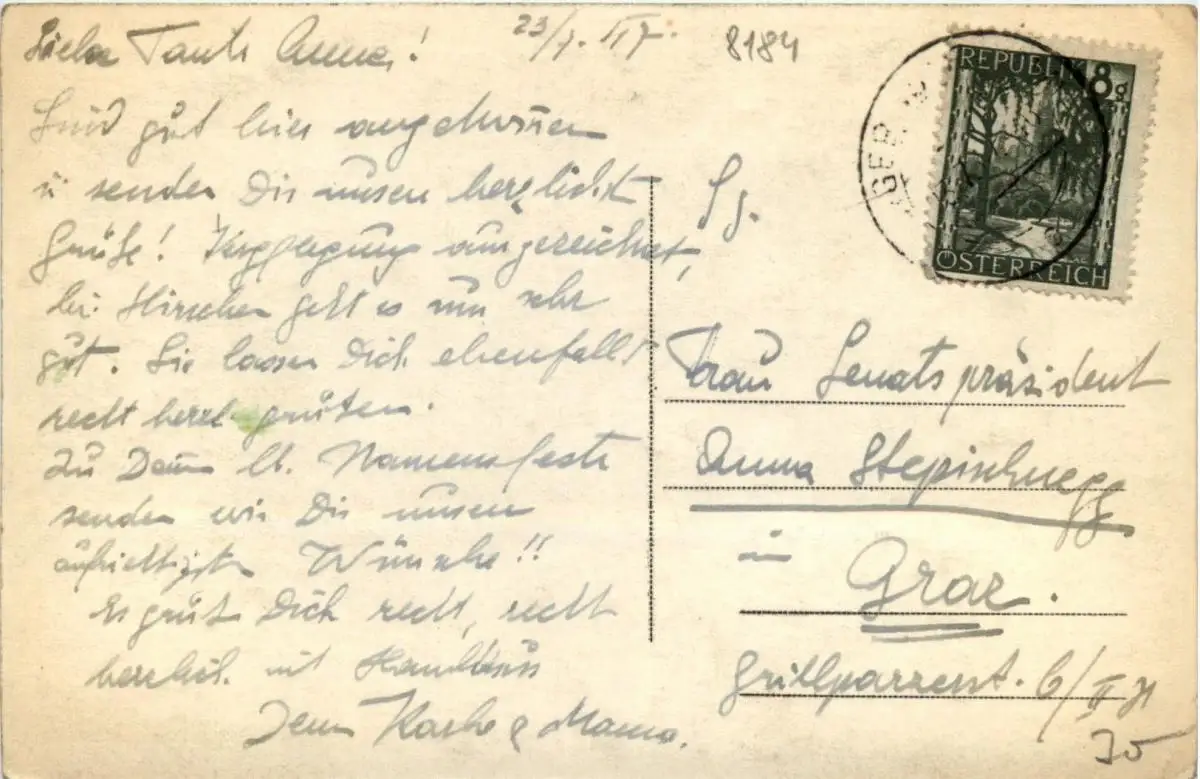 Liebe Tante Anna!
23/7. 47.
8184
Sind gut hier angekommen
u. senden Dir unsere herzlichst
Grüße! Verpflegung ausgezeichnet,
bei Hirschen geht es uns sehr
gut. Sie lassen Dich ebenfalls
recht herzl. grüßen.
Zu Deinem lb. Namensfeste
senden wir Dir unsere
aufrichtigsten Wünsche!!
Es grüßt Dich recht, recht
herzlich mit Handkuss
& Mama.
REPUBLIK 8g
ÖSTERREICH
Frau Senatspräsident
Anna Stepischnegg
in
Graz.
Grillparzerst. 6/II